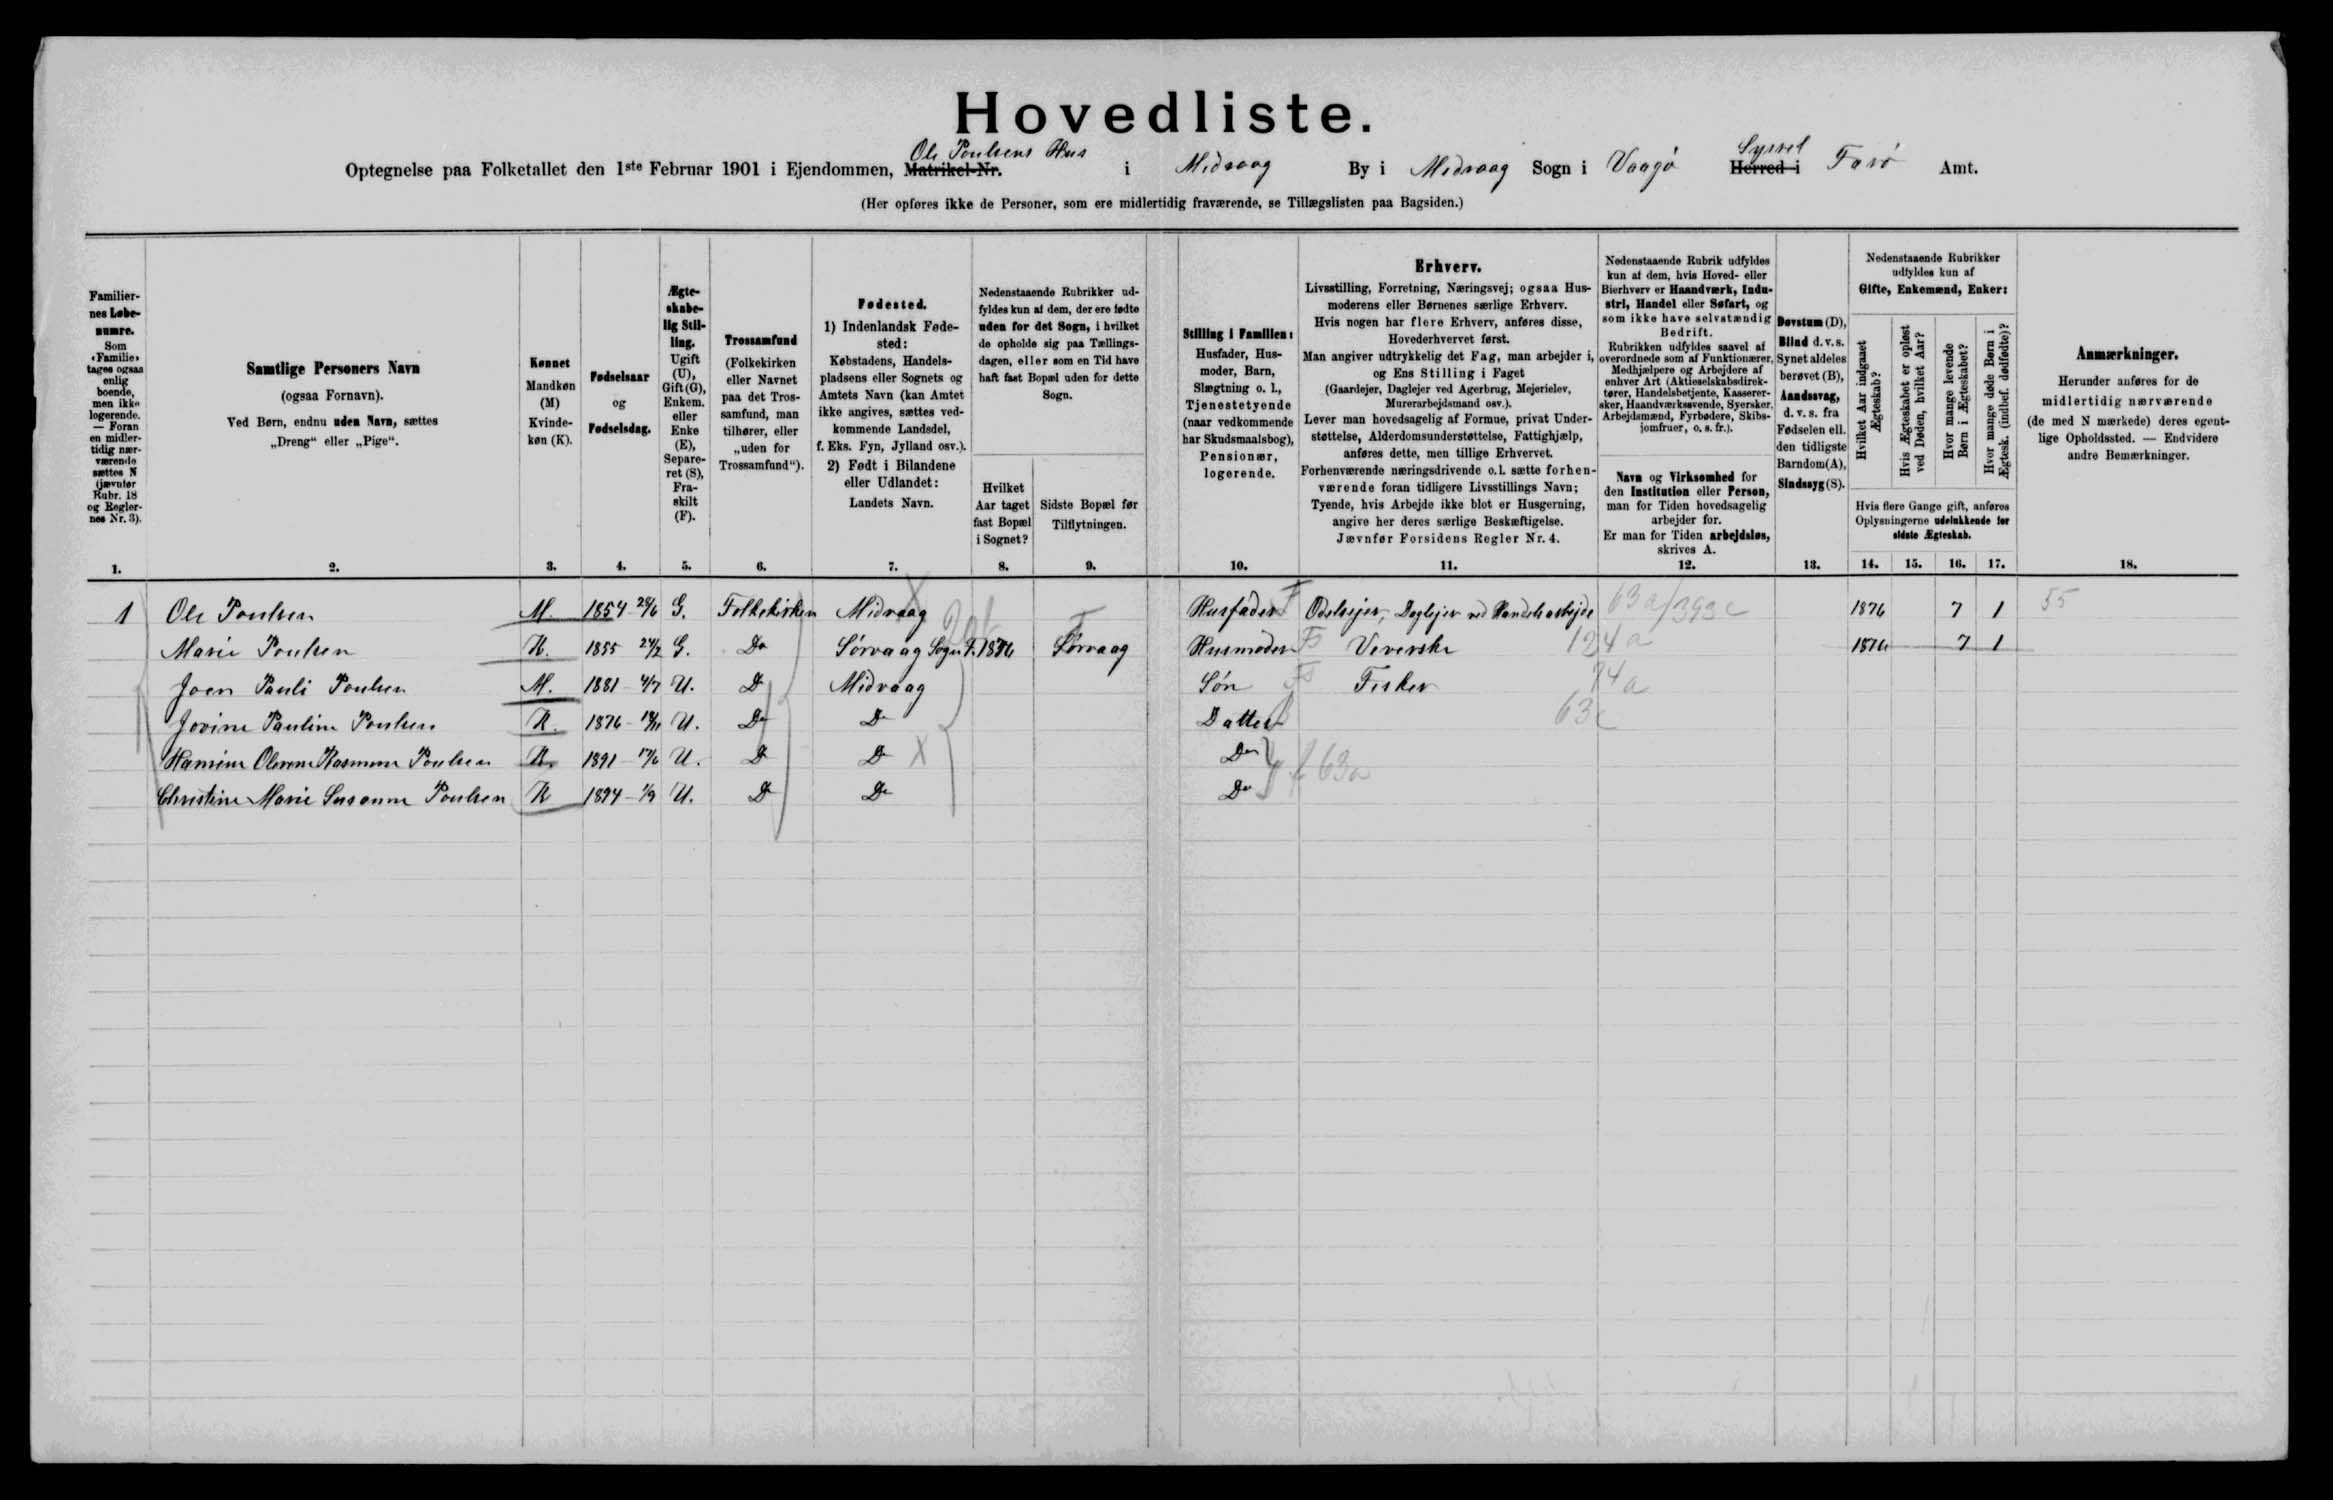 Hovedliste.
Ole Poulsens Hus
Syssel
Optegnelse paa Folketallet den 1ste Februar 1901 i Ejendommen, Matrikel-Nr. i Midvaag By i Midvaag Sogn i Vaagø Herred i Farø Amt.
(Her opføres ikke de Personer, som ere midlertidig fraværende, se Tillægslisten paa Bagsiden.)
Familier-
nes Løbe-
numre.
Som
«Familie»
tages ogsaa
enlig
boende,
men ikke
logerende.
— Foran
en midler-
tidig nær-
værende
sættes N
(jævnfør
Rubr. 18
og Regler-
nes Nr. 3).
1.
Samtlige Personers Navn
(ogsaa Fornavn).
Ved Børn, endnu uden Navn, sættes
„Dreng“ eller „Pige“.
2.
Kønnet
Mandkøn
(M)
Kvinde-
køn (K).
3.
Fødselsaar
og
Fødselsdag.
4.
Ægte-
skabe-
lig Stil-
ling.
Ugift
(U),
Gift (G),
Enkem.
eller
Enke
(E),
Separe-
ret (S),
Fra-
skilt
(F).
5.
Trossamfund
(Folkekirken
eller Navnet
paa det Tros-
samfund, man
tilhører, eller
„uden for
Trossamfund“).
6.
Fødested.
1) Indenlandsk Føde-
sted:
Købstadens, Handels-
pladsens eller Sognets og
Amtets Navn (kan Amtet
ikke angives, sættes ved-
kommende Landsdel,
f. Eks. Fyn, Jylland osv.).
2) Født i Bilandene
eller Udlandet:
Landets Navn.
7.
Nedenstaaende Rubrikker ud-
fyldes kun af dem, der ere fødte
uden for det Sogn, i hvilket
de opholde sig paa Tællings-
dagen, eller som en Tid have
haft fast Bopæl uden for dette
Sogn.
Hvilket
Aar taget
fast Bopæl
i Sognet?
8.
Sidste Bopæl før
Tilflytningen.
9.
Stilling i Familien:
Husfader, Hus-
moder, Barn,
Slægtning o. l.,
Tjenestetyende
(naar vedkommende
har Skudsmaalsbog),
Pensionær,
logerende.
10.
Erhverv.
Livsstilling, Forretning, Næringsvej; ogsaa Hus-
moderens eller Børnenes særlige Erhverv.
Hvis nogen har flere Erhverv, anføres disse,
Hovederhvervet først.
Man angiver udtrykkelig det Fag, man arbejder i,
og Ens Stilling i Faget
(Gaardejer, Daglejer ved Agerbrug, Mejerielev,
Murerarbejdsmand osv.).
Lever man hovedsagelig af Formue, privat Under-
støttelse, Alderdomsunderstøttelse, Fattighjælp,
anføres dette, men tillige Erhvervet.
Forhenværende næringsdrivende o. l. sætte forhen-
værende foran tidligere Livsstillings Navn;
Tyende, hvis Arbejde ikke blot er Husgerning,
angive her deres særlige Beskæftigelse.
Jævnfør Forsidens Regler Nr. 4.
11.
Nedenstaaende Rubrik udfyldes
kun af dem, hvis Hoved- eller
Bierhverv er Haandværk, Indu-
stri, Handel eller Søfart, og
som ikke have selvstændig
Bedrift.
Rubrikken udfyldes saavel af
overordnede som af Funktionærer,
Medhjælpere og Arbejdere af
enhver Art (Aktieselskabsdirek-
tører, Handelsbetjente, Kasserer-
sker, Haandværkssvende, Syersker,
Arbejdsmænd, Fyrbødere, Skibs-
jomfruer, o. s. fr.).
Navn og Virksomhed for
den Institution eller Person,
man for Tiden hovedsagelig
arbejder for.
Er man for Tiden arbejdsløs,
skrives A.
12.
Døvstum (D),
Blind d. v. s.
Synet aldeles
berøvet (B),
Aandssvag,
d. v. s. fra
Fødselen ell.
den tidligste
Barndom (A),
Sindssyg (S).
13.
Nedenstaaende Rubrikker
udfyldes kun af
Gifte, Enkemænd, Enker:
Hvilket Aar indgaaet
Ægteskab?
Hvis Ægteskabet er opløst
ved Døden, hvilket Aar?
Hvor mange levende
Børn i Ægteskabet?
Hvor mange døde Børn i
Ægtesk. (indbef. dødfødte)?
Hvis flere Gange gift, anføres
Oplysningerne udelukkende for
sidste Ægteskab.
14. 15. 16. 17.
Anmærkninger.
Herunder anføres for de
midlertidig nærværende
(de med N mærkede) deres egent-
lige Opholdssted. — Endvidere
andre Bemærkninger.
18.
1 Ole Poulsen M. 1854 G. Folkekirken Midvaag Husfader Odelsejer, Daglejer ved Handelsarbejde 63a/393c 1876 7 1 55
Marie Poulsen K. 1855 24/2 G. Do Sørvaag Sogn F. 1876 Sørvaag Husmoder Væverske 124a 1876 7 1
Joen Pauli Poulsen M. 1881 4/7 U. Do Midvaag Søn Fisker 74a
Jovine Pauline Poulsen K. 1876 U. Do Do Datter 63c
Hansine Olevine Rasmine Poulsen K. 1891 17/6 U. Do Do Do 63a
Christine Marie Susanne Poulsen K 1894 1/9 U. Do Do Do